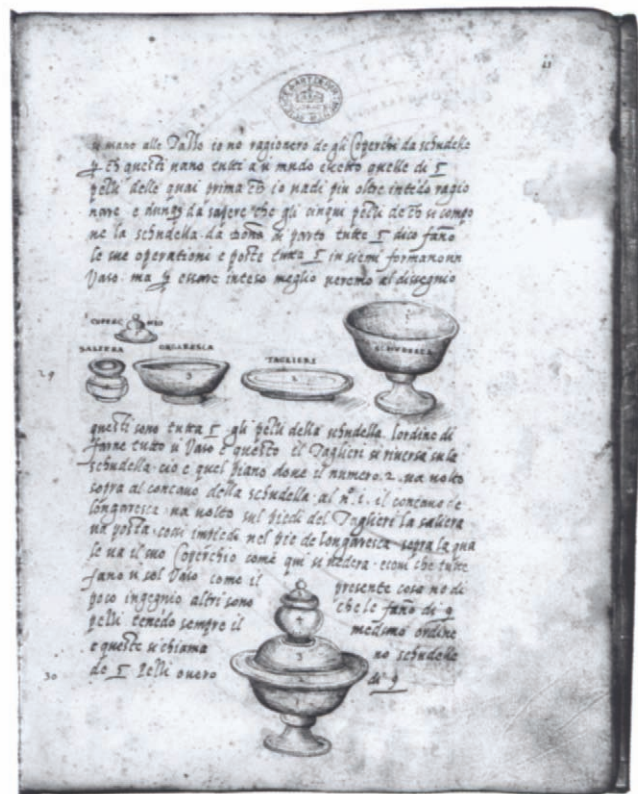 11
si mano alle Tallo io nō ragionero de gli Coperchi da schudelle
questi uano tutti a ū mōdo eccetto quelle di 5
pezzi delle quai prima io uadi piu oltre intēdo ragio
nare e da sapere che gli cinque pezzi de si compo
ne la schudella da Dōna di parto tutte 5 dico fano
le sue operationi e poste tutta 5 in siemi formano un
Vaso. ma essere inteso meglio ueremo al dissegnio
COPERC HIO
SALIERA ONGARESCA TAGLIERI SCHUDELLA
3 2 1
29
questi sono tutta 5 gli pezzi della schudella. l'ordine di
farne tutto ū Vaso e questo il Taglieri si riuersa su la
schudella cio e quel piano doue il numero. 2. ua uolto
sopra al concauo della schudella al nº. i. il concauo de
longaresca ua uolto sul piedi del Taglieri la saliera
ua posta cosi īpiedi nel pie de longaresca sopra la qua
le ua il suo Coperchio come qui si uedera. ecoui che tutte
fano ū sol Vaso come il presente cosa nō di
poco ingegnio altri sono che le fano di 9
pezzi tenēdo sempre il medsmo ordine
e queste si chiama no schudelle
de 5 Pezzi ouero di 9
30
4
3
2
1